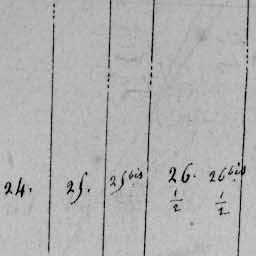 24. 25. 25bis 26. 26bis
1/2 1/2